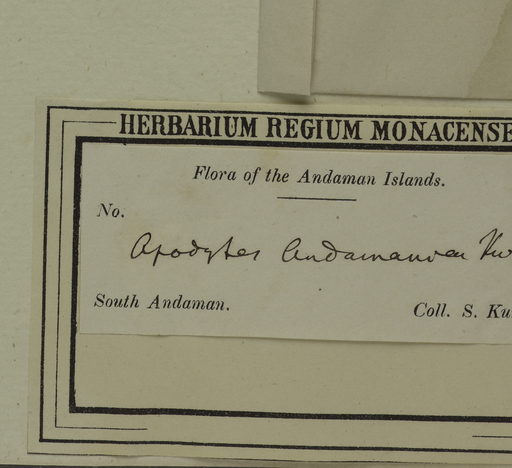 HERBARIUM REGIUM MONACENSE
Flora of the Andaman Islands.
No.
Apodytes Andamanica
South Andaman.
Coll. S. Ku